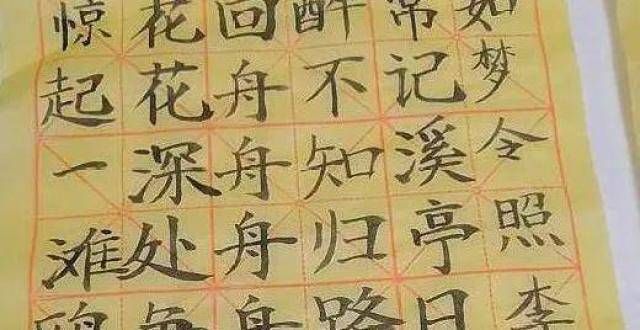 如梦令照李
常记溪亭日
醉不知归路
回舟舟舟舟
花花深处
惊起一滩鸥